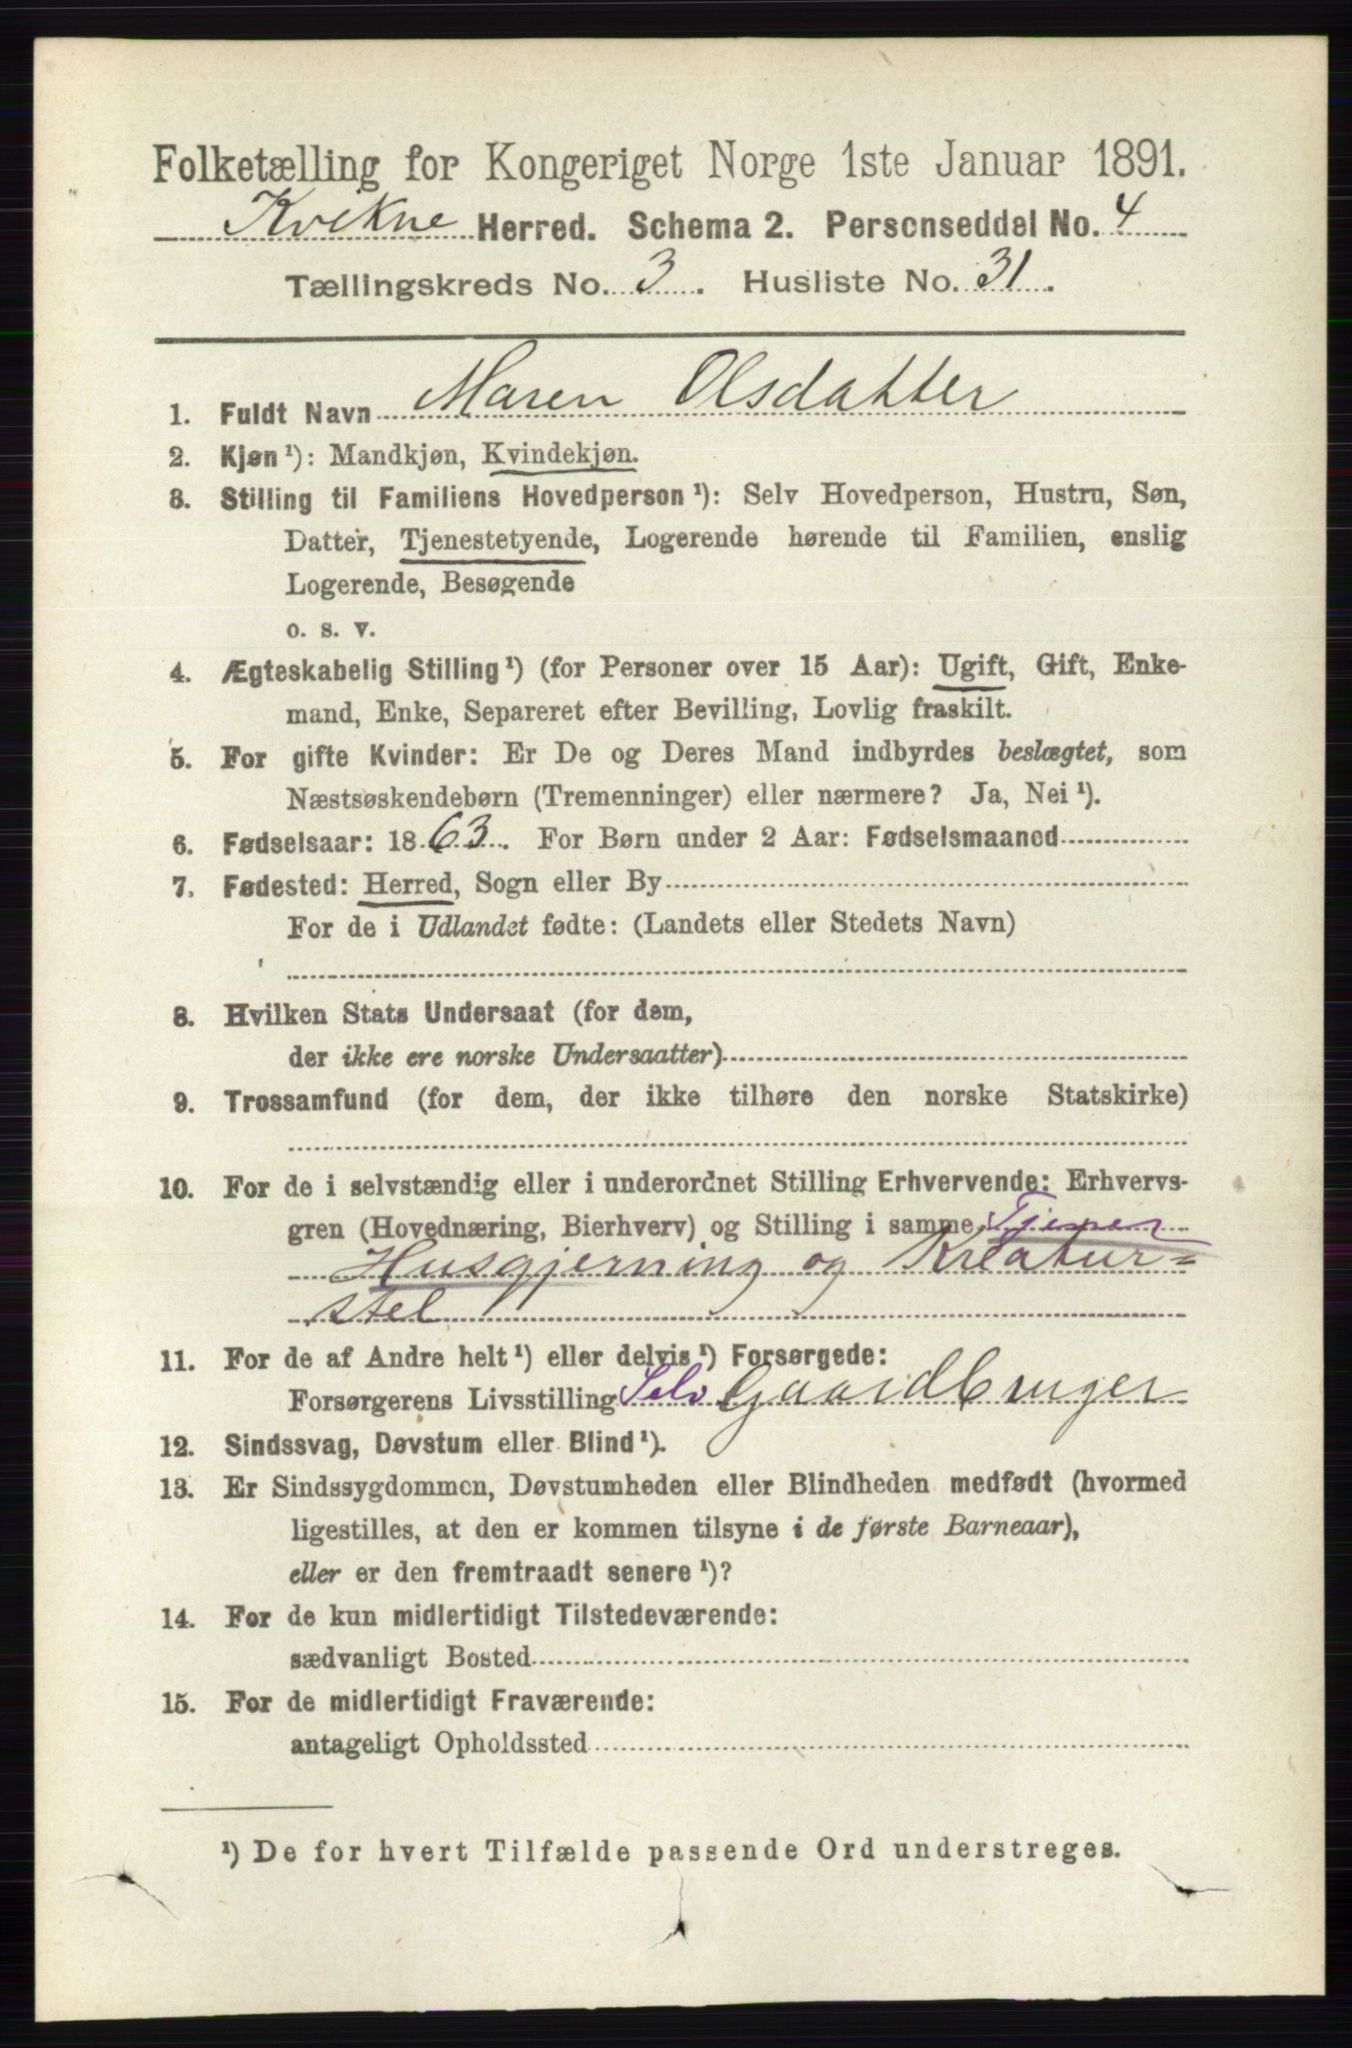 Folketælling for Kongeriget Norge 1ste Januar 1891.
Kvikne Herred. Schema 2. Personseddel No. 4
Tællingskreds No. 3. Husliste No. 31.
1. Fuldt Navn Maren Olsdatter
2. Kjøn¹): Mandkjøn, Kvindekjøn.
3. Stilling til Familiens Hovedperson¹): Selv Hovedperson, Hustru, Søn,
Datter, Tjenestetyende, Logerende hørende til Familien, enslig
Logerende, Besøgende
o. s. v.
4. Ægteskabelig Stilling¹) (for Personer over 15 Aar): Ugift, Gift, Enke-
mand, Enke, Separeret efter Bevilling, Lovlig fraskilt.
5. For gifte Kvinder: Er De og Deres Mand indbyrdes beslægtet, som
Næstsøskendebørn (Tremenninger) eller nærmere? Ja, Nei¹).
6. Fødselsaar: 1863. For Børn under 2 Aar: Fødselsmaaned
7. Fødested: Herred, Sogn eller By
For de i Udlandet fødte: (Landets eller Stedets Navn)
8. Hvilken Stats Undersaat (for dem,
der ikke ere norske Undersaatter)
9. Trossamfund (for dem, der ikke tilhøre den norske Statskirke)
10. For de i selvstændig eller i underordnet Stilling Erhvervende: Erhvervs-
gren (Hovednæring, Bierhverv) og Stilling i samme, Tjener
Husgjerning og Kreatur=
stel
11. For de af Andre helt¹) eller delvis¹) Forsørgede:
Forsørgerens Livsstilling Selv Gaardbruger
12. Sindssvag, Døvstum eller Blind¹).
13. Er Sindssygdommen, Døvstumheden eller Blindheden medfødt (hvormed
ligestilles, at den er kommen tilsyne i de første Barneaar),
eller er den fremtraadt senere¹)?
14. For de kun midlertidigt Tilstedeværende:
sædvanligt Bosted
15. For de midlertidigt Fraværende:
antageligt Opholdssted
¹) De for hvert Tilfælde passende Ord understreges.